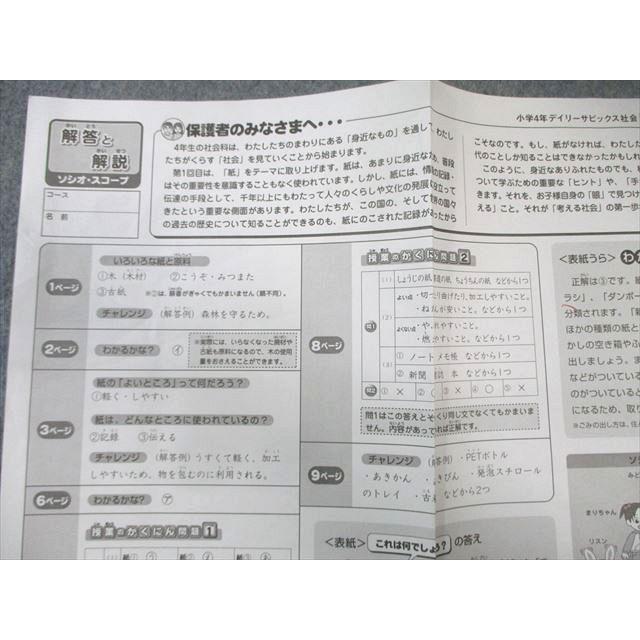 小学4年デイリーサピックス社会
解答と
解説
ソシオ・スコープ
コース
名前
保護者のみなさまへ・・・
4年生の社会科は、わたしたちのまわりにある「身近なもの」を通して、わたし
たちがくらす「社会」を見ていくことから始まります。
第1回目は、「紙」をテーマに取り上げます。紙は、あまりに身近な
はその重要性を意識することもなく使われています。しかし、紙には、情
伝達の手段として、千年以上にもわたって人々のくらしや文化の発展
きたという重要な側面があります。わたしたちが、この国の、そして
の過去の歴史について知ることができるのも、紙にのこされた記録が
こそなのです。もし、紙がなければ、わたしたち
代のことしか知ることはできなかったかもしれ
このように、身近なありふれたものでも、
ついて学ぶための重要な「ヒント」や、「手
きます。それを、お子様自身の「眼」で見つけ
える」こと。それが「考える社会」の第一歩
1ページ
いろいろな紙と原料
①木（木材） ②こうぞ・みつまた
③古紙 ※②は、順番がぎゃくでもかまいません（順不同）。
チャレンジ （解答例）森林を守るため。
2ページ
わかるかな？ ㋑
※実際には、いらなくなった廃材や
古紙も原料になるので、木の使用
量をおさえることができます。
3ページ
紙の「よいところ」って何だろう？
①軽く・しやすい
紙は、どんなところに使われているの？
②記録 ③伝える
チャレンジ （解答例）うすくて軽く、加工
しやすいため、物を包むのに利用される。
6ページ
わかるかな？ ㋐
授業のかくにん問題1
8ページ
授業のかくにん問題2
問1
(1) しょうじの紙 ちょうちんの紙 などから1つ
よい点・切ったり曲げたり、加工しやすいこと。
・ねだんが安いこと。などから1つ
よくない点・やぶれやすいこと。
・燃えやすいこと。などから1つ
(3) ① ノート メモ帳 などから1つ
② 新聞 などから1つ
問2 ① × ② ③ × ④ 〇 ⑤ ×
問1はこの答えとそっくり同じ文でなくてもかまいま
せん。内容があっていれば正解です。
9ページ
チャレンジ （解答例）・PETボトル
・あきかん ・あきびん ・発泡スチロール
のトレイ などから2つ
<表紙> これは何でしょう？ の答え
<表紙うら>
正解は③です。
ラシ」、「ダンボー
分類されます。「新
ほかの種類の紙と
かしの空き箱やふ
出しましょう。ま
などがついている
のがついていると
になるため、取り
※ごみの出し方は、
まりちゃん
リスン